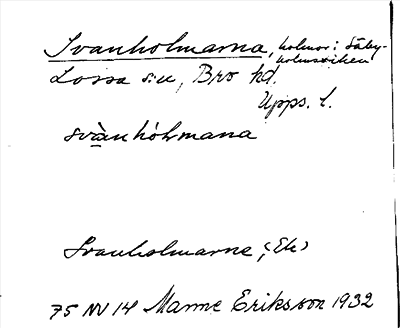 Svanholmarna, holmar i Säby-
holmsviken
Lossa s:n, Bro hd.
Upps. l.
svànhól̥mana
Svanholmarne, (Ek)
75 NV 14 Manne Eriksson 1932